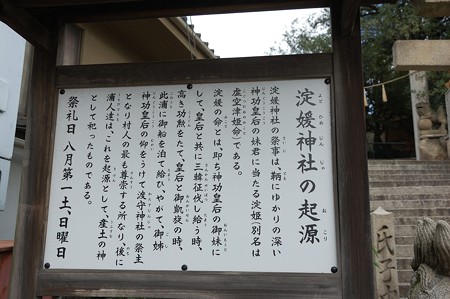 淀媛神社の起源
淀媛神社の祭事は鞆にゆかりの深い
神功皇后の妹君に当たる淀姫(別名は
虚空津姫命)である。
淀媛の命とは、即ち神功皇后の御妹に
して、皇后と共に三韓征伐し給う時、
高き功勲をたて、皇后と御凱旋の時、
此浦に御船を泊て給ひ、やがて、御姉
神功皇后の仰をうけて波守神社の祭主
となり村人の最も尊崇する所なり、後に
浦人達は、これを起源として、産土の神
として祀ったものである。
祭礼日 八月第一土、日曜日
氏子